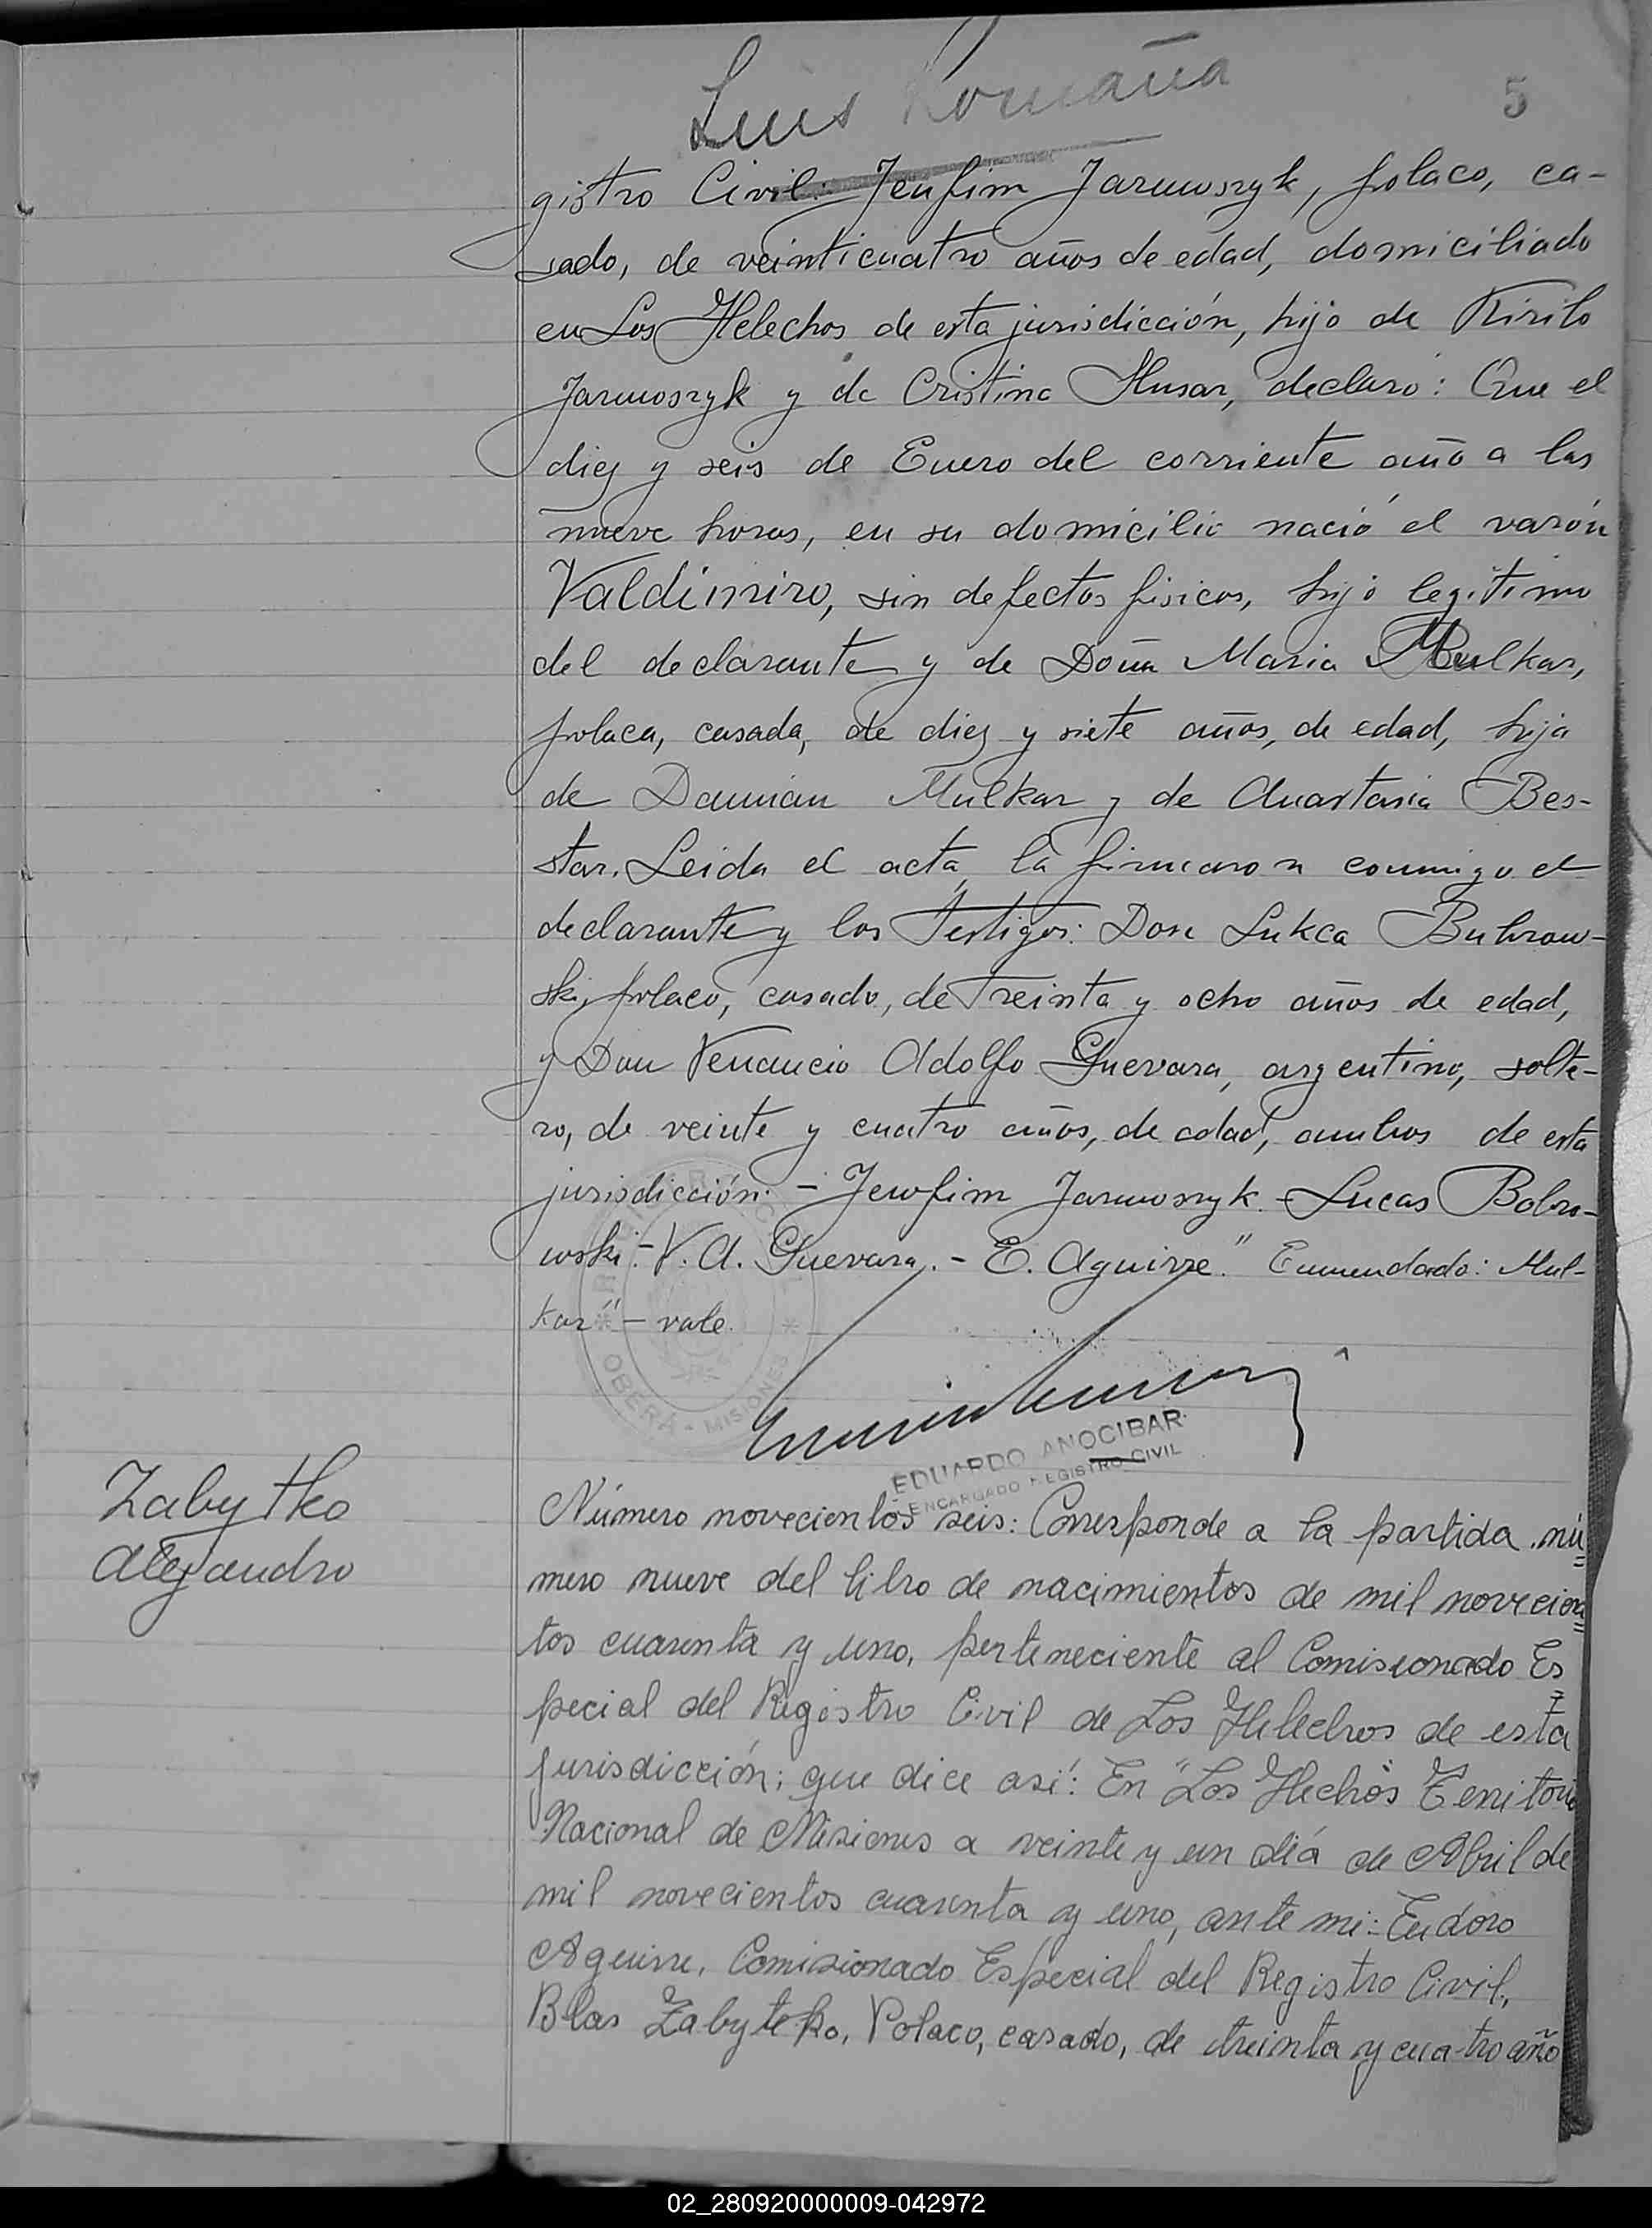 Luis Romaña
5
gistro Civil: Jeufim Jarmoszyk, polaco, ca-
sado, de veinticuatro años de edad, domiciliado
en Los Helechos de esta jurisdicción, hijo de Kirilo
Jarmoszyk y de Cristina Husar, declaró: Que el
diez y seis de Enero del corriente año a las
nueve horas, en su domicilio nació el varón
Valdimiro, sin defectos fisicos, hijo legitimo
del declarante y de Doña Maria Mulkar,
polaca, casada, de diez y siete años, de edad, hija
de Damian Mulkar y de Anastasia Bes-
tar. Leida el acta, la firmaron conmigo el
declarante y los testigos: Don Lukca Buhrow-
ski, polaco, casado, de treinta y ocho años de edad,
y Don Venancio Adolfo Guevara, argentino, solte-
ro, de veinte y cuatro años, de edad, ambos de esta
jurisdicción. - Jeufim Jarmoszyk - Lucas Bobro-
wski - V. A. Guevara. - E. Aguirre." Enmendado: Mul-
kar" - vale.
OBERÁ - MISIONES
EDUARDO ANOCIBAR
ENCARGADO REGISTRO CIVIL
Zabytko
Alejandro
Número novecientos seis: Corresponde a la partida nú
mero nueve del libro de nacimientos de mil novecien
tos cuarenta y uno, perteneciente al Comisionado Es
pecial del Registro Civil de Los Helechos de esta
jurisdicción; que dice así: En "Los Hechos" Territorio
Nacional de Misiones a veinte y un día de Abril de
mil novecientos cuarenta y uno, ante mi: Eudoro
Aguirre, Comisionado Especial del Registro Civil,
Blas Zabytko, Polaco, casado, de treinta y cuatro año
02_280920000009-042972